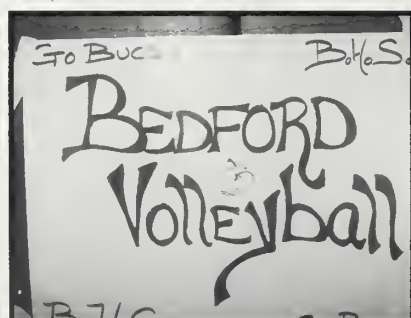 Go Buc B.H.S.
BEDFORD
Volleyball